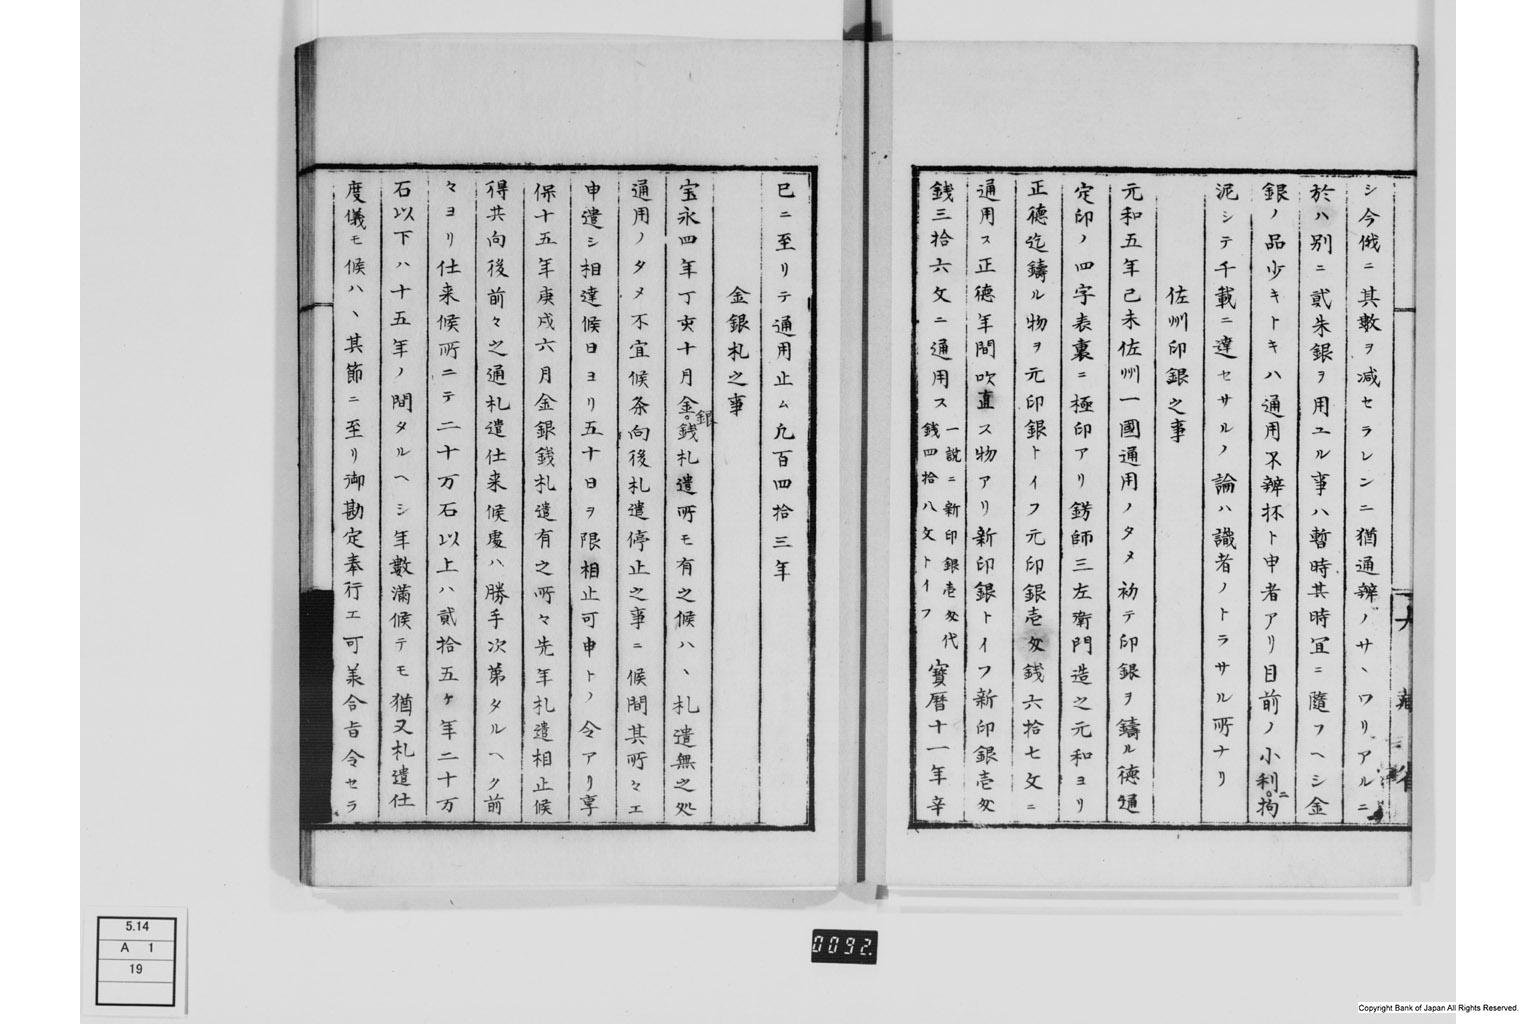 シ今俄ニ其數ヲ減セラレンニ猶通辨ノサヽワリアルニ
於ハ别ニ貳朱銀ヲ用ユル事ハ暫時其時冝ニ隨フヘシ金
銀ノ品少キトキハ通用不辨抔ト申者アリ目前ノ小利ニ拘
泥シテ千載ニ違セサルノ論ハ識者ノトラサル所ナリ
佐州印銀之事
元和五年己未佐州一國通用ノタメ初テ印銀ヲ鑄ル徳通
定印ノ四字表裏ニ極印アリ錺師三左衛門造之元和ヨリ
正德迄鑄ル物ヲ元印銀トイフ元印銀壱匁銭六拾七文ニ
通用ス正德年間吹直ス物アリ新印銀トイフ新印銀壱匁
銭三拾六文ニ通用ス 一説ニ新印銀壱匁代銭四拾八文トイフ 寶暦十一年辛
巳ニ至リテ通用止ム凢百四拾三年
金銀札之事
宝永四年丁亥十月金銀銭札遣所モ有之候ハヽ札遣無之処
通用ノタメ不宜候条向後札遣停止之事ニ候間其所々エ
申遣シ相達候日ヨリ五十日ヲ限相止可申トノ令アリ享
保十五年庚戌六月金銀銭札遣有之所々先年札遣相止候
得共向後前々之通札遣仕来候處ハ勝手次第タルヘク前
々ヨリ仕来候所ニテ二十万石以上ハ貳拾五ケ年二十万
石以下ハ十五年ノ間タルヘシ年數滿候テモ猶又札遣仕
度儀モ候ハヽ其節ニ至リ御勘定奉行エ可差合旨令セラ
大藏省
5.14
A 1
19
0092
Copyright Bank of Japan All Rights Reserved.